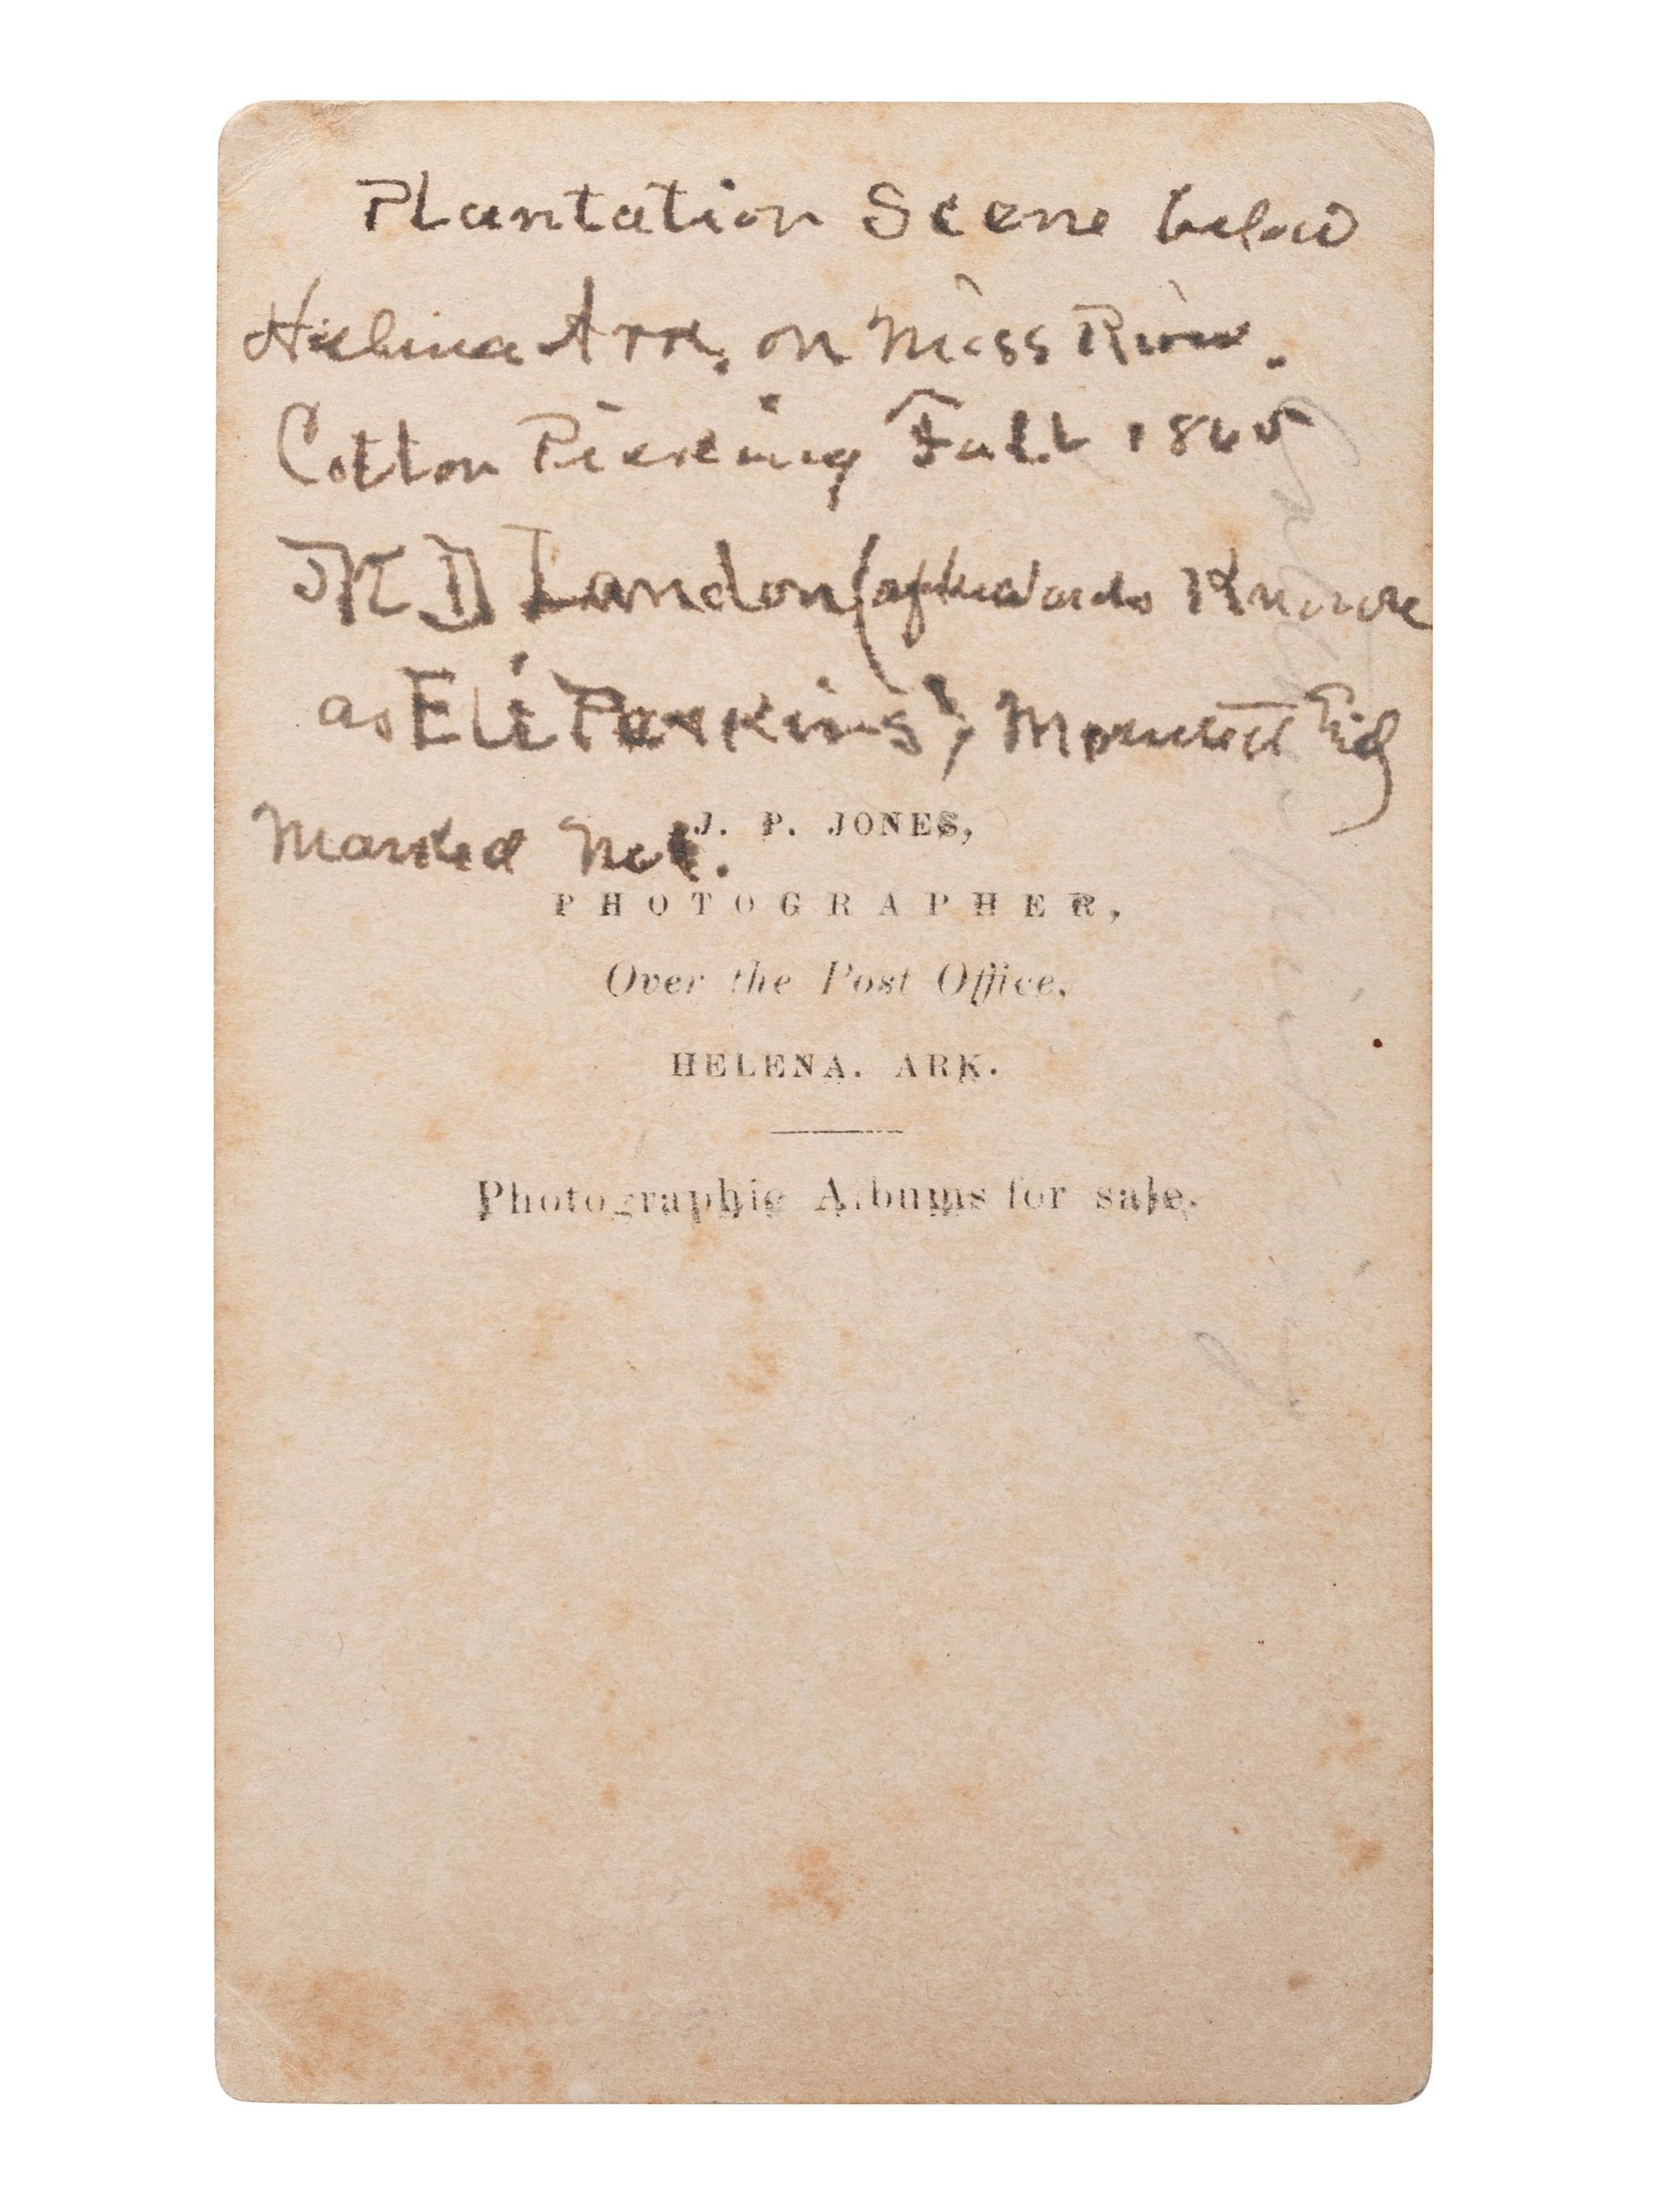 Plantation Scene below
Helena Ark. on Miss River.
Cotton Picking Fall 1865
M D Landon (afterwards Known
as Eli Perkins) Mounted Fig
Marked No 1.
J. P. JONES,
PHOTOGRAPHER,
Over the Post Office,
HELENA. ARK.
Photographic Albums for sale.